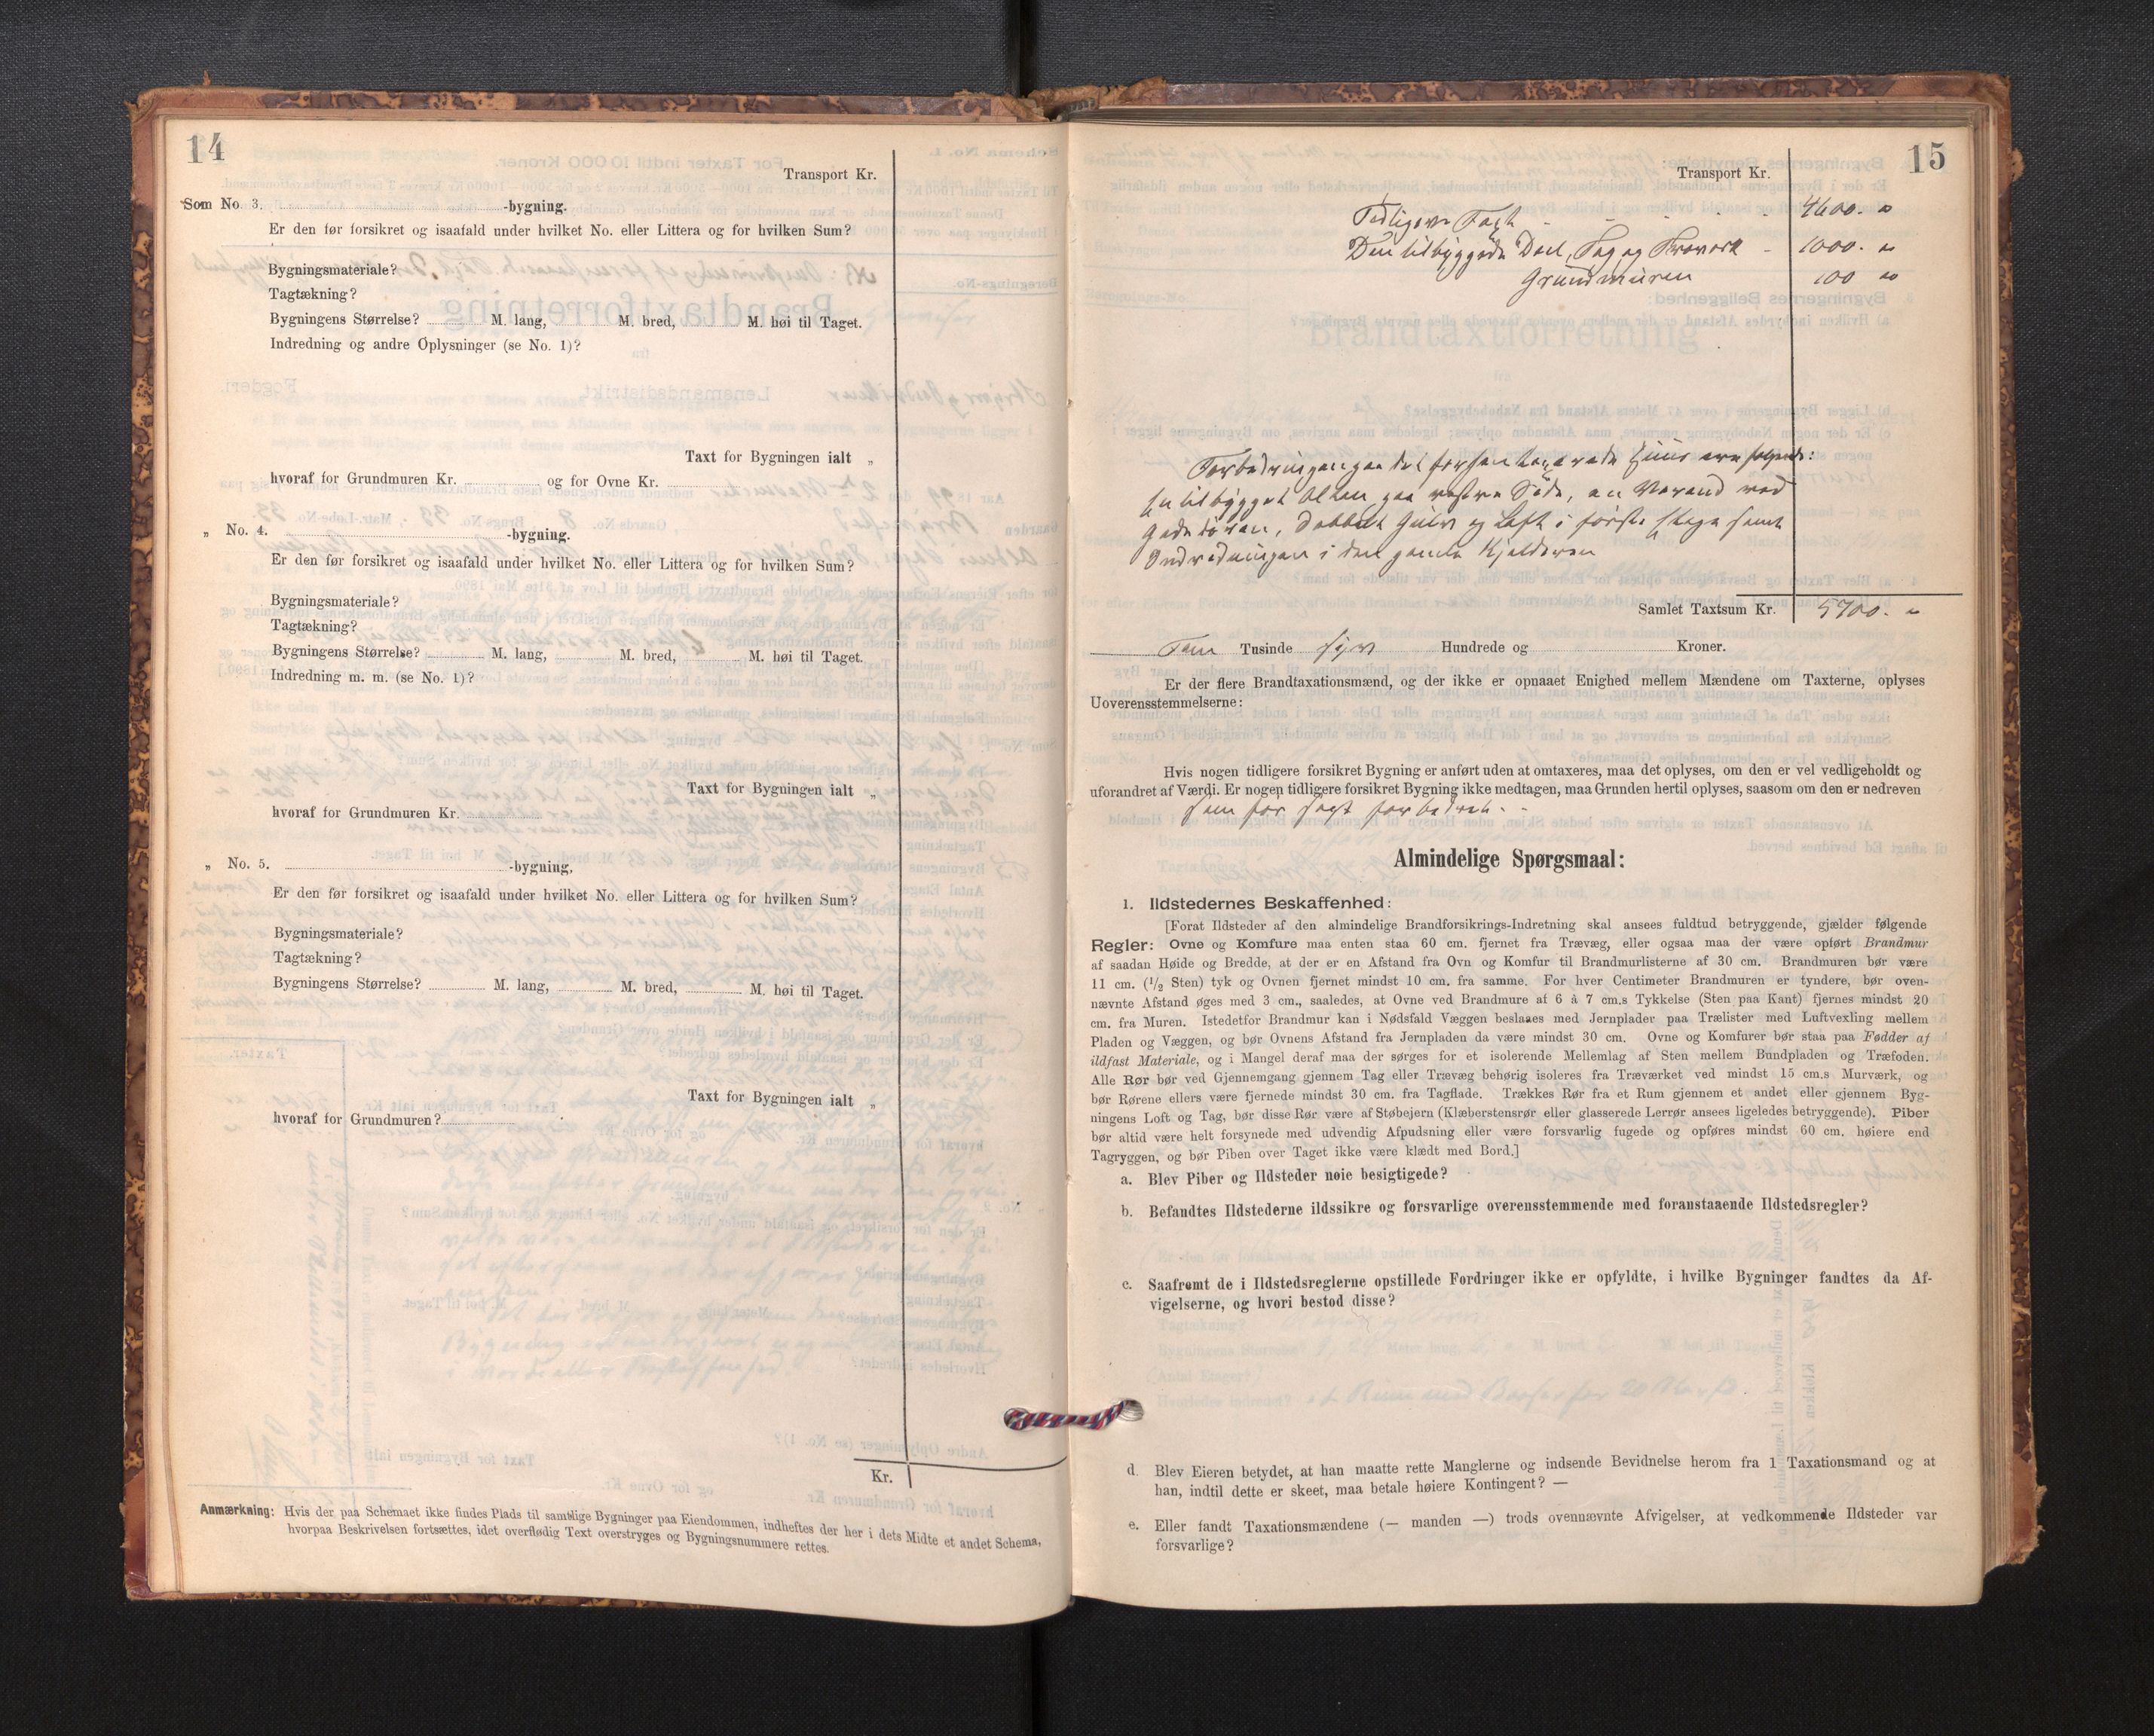 14
Transport Kr.
Som No. 3. -bygning.
Er den før forsikret og isaafald under hvilket No. eller Littera og for hvilken Sum?
Bygningsmateriale?
Tagtækning?
Bygningens Størrelse? M. lang, M. bred, M. høi til Taget.
Indredning og andre Oplysninger (se No. 1)?
Taxt for Bygningen ialt „
hvoraf for Grundmuren Kr. og for Ovne Kr.
„ No. 4. -bygning.
Er den før forsikret og isaafald under hvilket No. eller Littera og for hvilken Sum?
Bygningsmateriale?
Tagtækning?
Bygningens Størrelse? M. lang, M. bred, M. høi til Taget.
Indredning m. m. (se No. 1)?
Taxt for Bygningen ialt „
hvoraf for Grundmuren Kr.
„ No. 5. -bygning,
Er den før forsikret og isaafald under hvilket No. eller Littera og for hvilken Sum?
Bygningsmateriale?
Tagtækning?
Bygningens Størrelse? M. lang, M. bred, M. høi til Taget.
Taxt for Bygningen ialt „
hvoraf for Grundmuren?
Kr.
Anmærkning: Hvis der paa Schemaet ikke findes Plads til samtlige Bygninger paa Eiendommen, indheftes der her i dets Midte et andet Schema,
hvorpaa Beskrivelsen fortsættes, idet overflødig Text overstryges og Bygningsnummere rettes.
15
Transport Kr.
Tidligere Taxt - - - - 4600. "
Den tilbyggede Deel, Tag og Træverk - 1000. "
Grundmuren 100 "
Forbedringen paa det forhen taxerede Huus ere følgende:
En tilbygget Altan paa vestre Side, en Verand ved
Gadedøren, dobbelt Gulv og Loft i første Etage samt
Indredningen i den gamle Kjelderen
Samlet Taxtsum Kr. 5700. "
Fem Tusinde syv Hundrede og Kroner.
Er der flere Brandtaxationsmænd, og der ikke er opnaaet Enighed mellem Mændene om Taxterne, oplyses
Uoverensstemmelserne:
Hvis nogen tidligere forsikret Bygning er anført uden at omtaxeres, maa det oplyses, om den er vel vedligeholdt og
uforandret af Værdi. Er nogen tidligere forsikret Bygning ikke medtagen, maa Grunden hertil oplyses, saasom om den er nedreven
som før sagt forbedret. -
Almindelige Spørgsmaal:
1. Ildstedernes Beskaffenhed:
[Forat Ildsteder af den almindelige Brandforsikrings-Indretning skal ansees fuldtud betryggende, gjælder følgende
Regler: Ovne og Komfure maa enten staa 60 cm. fjernet fra Trævæg, eller ogsaa maa der være opført Brandmur
af saadan Høide og Bredde, at der er en Afstand fra Ovn og Komfur til Brandmurlisterne af 30 cm. Brandmuren bør være
11 cm. (1/2 Sten) tyk og Ovnen fjernet mindst 10 cm. fra samme. For hver Centimeter Brandmuren er tyndere, bør oven-
nævnte Afstand øges med 3 cm., saaledes, at Ovne ved Brandmure af 6 à 7 cm.s Tykkelse (Sten paa Kant) fjernes mindst 20
cm. fra Muren. Istedetfor Brandmur kan i Nødsfald Væggen beslaaes med Jernplader paa Trælister med Luftvexling mellem
Pladen og Væggen, og bør Ovnens Afstand fra Jernpladen da være mindst 30 cm. Ovne og Komfurer bør staa paa Fødder af
ildfast Materiale, og i Mangel deraf maa der sørges for et isolerende Mellemlag af Sten mellem Bundpladen og Træfoden.
Alle Rør bør ved Gjennemgang gjennem Tag eller Trævæg behørig isoleres fra Træværket ved mindst 15 cm.s Murværk, og
bør Rørene ellers være fjernede mindst 30 cm. fra Tagflade. Trækkes Rør fra et Rum gjennem et andet eller gjennem Byg-
ningens Loft og Tag, bør disse Rør være af Støbejern (Klæberstensrør eller glasserede Lerrør ansees ligeledes betryggende). Piber
bør altid være helt forsynede med udvendig Afpudsning eller være forsvarlig fugede og opføres mindst 60 cm. høiere end
Tagryggen, og bør Piben over Taget ikke være klædt med Bord.]
a. Blev Piber og Ildsteder nøie besigtigede?
b. Befandtes Ildstederne ildssikre og forsvarlige overensstemmende med foranstaaende Ildstedsregler?
c. Saafremt de i Ildstedsreglerne opstillede Fordringer ikke er opfyldte, i hvilke Bygninger fandtes da Af-
vigelserne, og hvori bestod disse?
d. Blev Eieren betydet, at han maatte rette Manglerne og indsende Bevidnelse herom fra 1 Taxationsmand og at
han, indtil dette er skeet, maa betale høiere Kontingent? —
e. Eller fandt Taxationsmændene (— manden —) trods ovennævnte Afvigelser, at vedkommende Ildsteder var
forsvarlige?